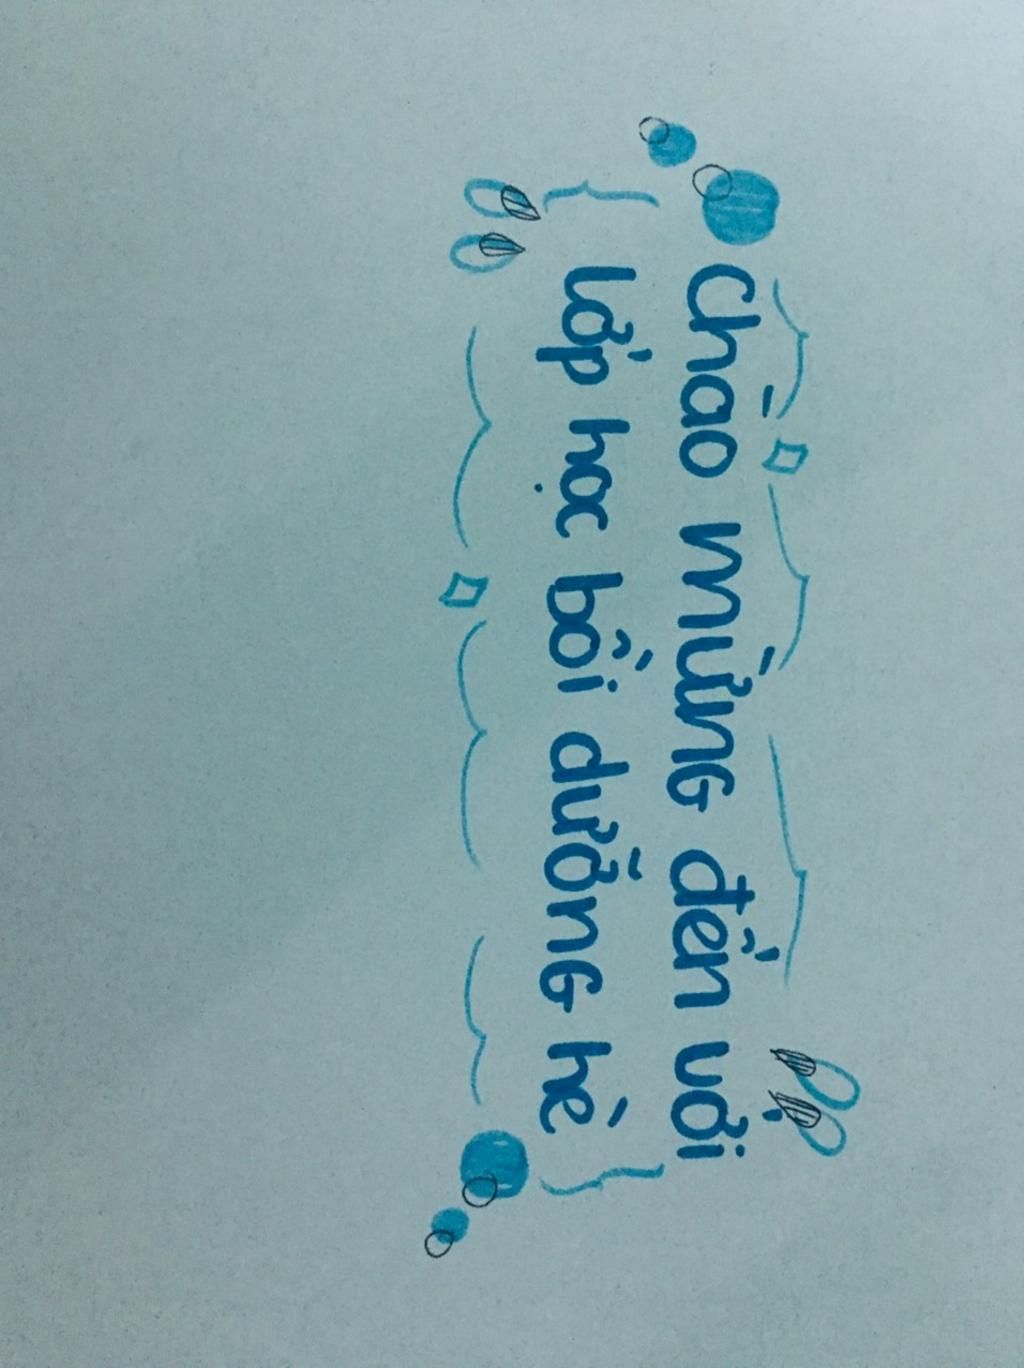 Chào mừng đến với
lớp học bồi dưỡng hè